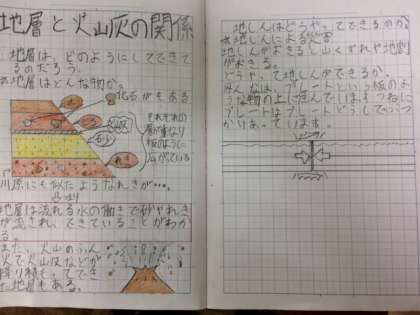 地層と火山灰の関係
地層は、どのようにしてできて
るのだろう。
地層はどんな物か。
化石がもある
それぞれの
層が重なり
板のように
広がっている
川原にも似たようなれきが…。
地層は流れる水の働きで砂やれき
が流され、できていることがわか
る。
また、火山のふん
火で火山灰などが
降り積もってでき
た地層もある。
地しんはどうやってできるのか。
地しんによる災害
地しんがおきると山くずれや地割
れがおきる。
どうやって地しんができるか。
みんなは、プレートという板のよ
うな物の上に住んでいるよ
プレートはプレートどうしでぶつ
かりあっています。